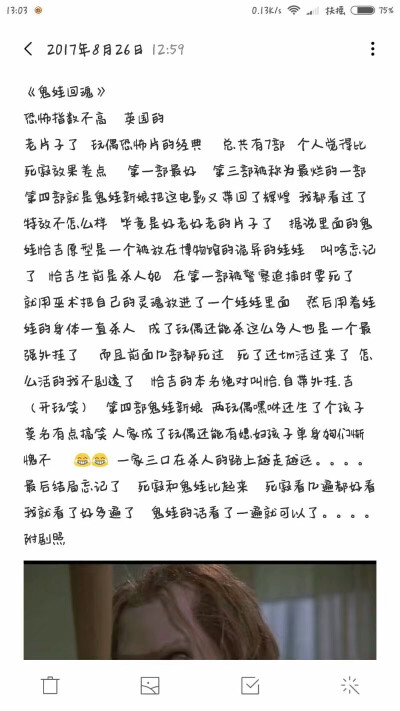 13:03
0.13K/s
75%
2017年8月26日 12:59
《鬼娃回魂》
恐怖指数不高 英国的
老片子了 玩偶恐怖片的经典 总共有7部 个人觉得比
死寂效果差点 第一部最好 第三部被称为最烂的一部
第四部就是鬼娃新娘把这电影又带回了辉煌 我都看过了
特效不怎么样 毕竟是好老好老的片子了 据说里面的鬼
娃恰吉原型是一个被放在博物馆的诡异的娃娃 叫啥忘记
了 恰吉生前是杀人犯 在第一部被警察追捕时要死了
就用巫术把自己的灵魂放进了一个娃娃里面 然后用着娃
娃的身体一直杀人 成了玩偶还能杀这么多人也是一个最
强外挂了 而且前面几部都死过 死了还tm活过来了 怎
么活的我不剧透了 恰吉的本名绝对叫恰.自带外挂.吉
（开玩笑） 第四部鬼娃新娘 两玩偶嘿咻还生了个孩子
莫名有点搞笑 人家成了玩偶还能有媳妇孩子单身狗们惭
愧不 😂😂 一家三口在杀人的路上越走越远。。。。
最后结局忘记了 死寂和鬼娃比起来 死寂看几遍都好看
我就看了好多遍了 鬼娃的话看了一遍就可以了。。。。
附剧照